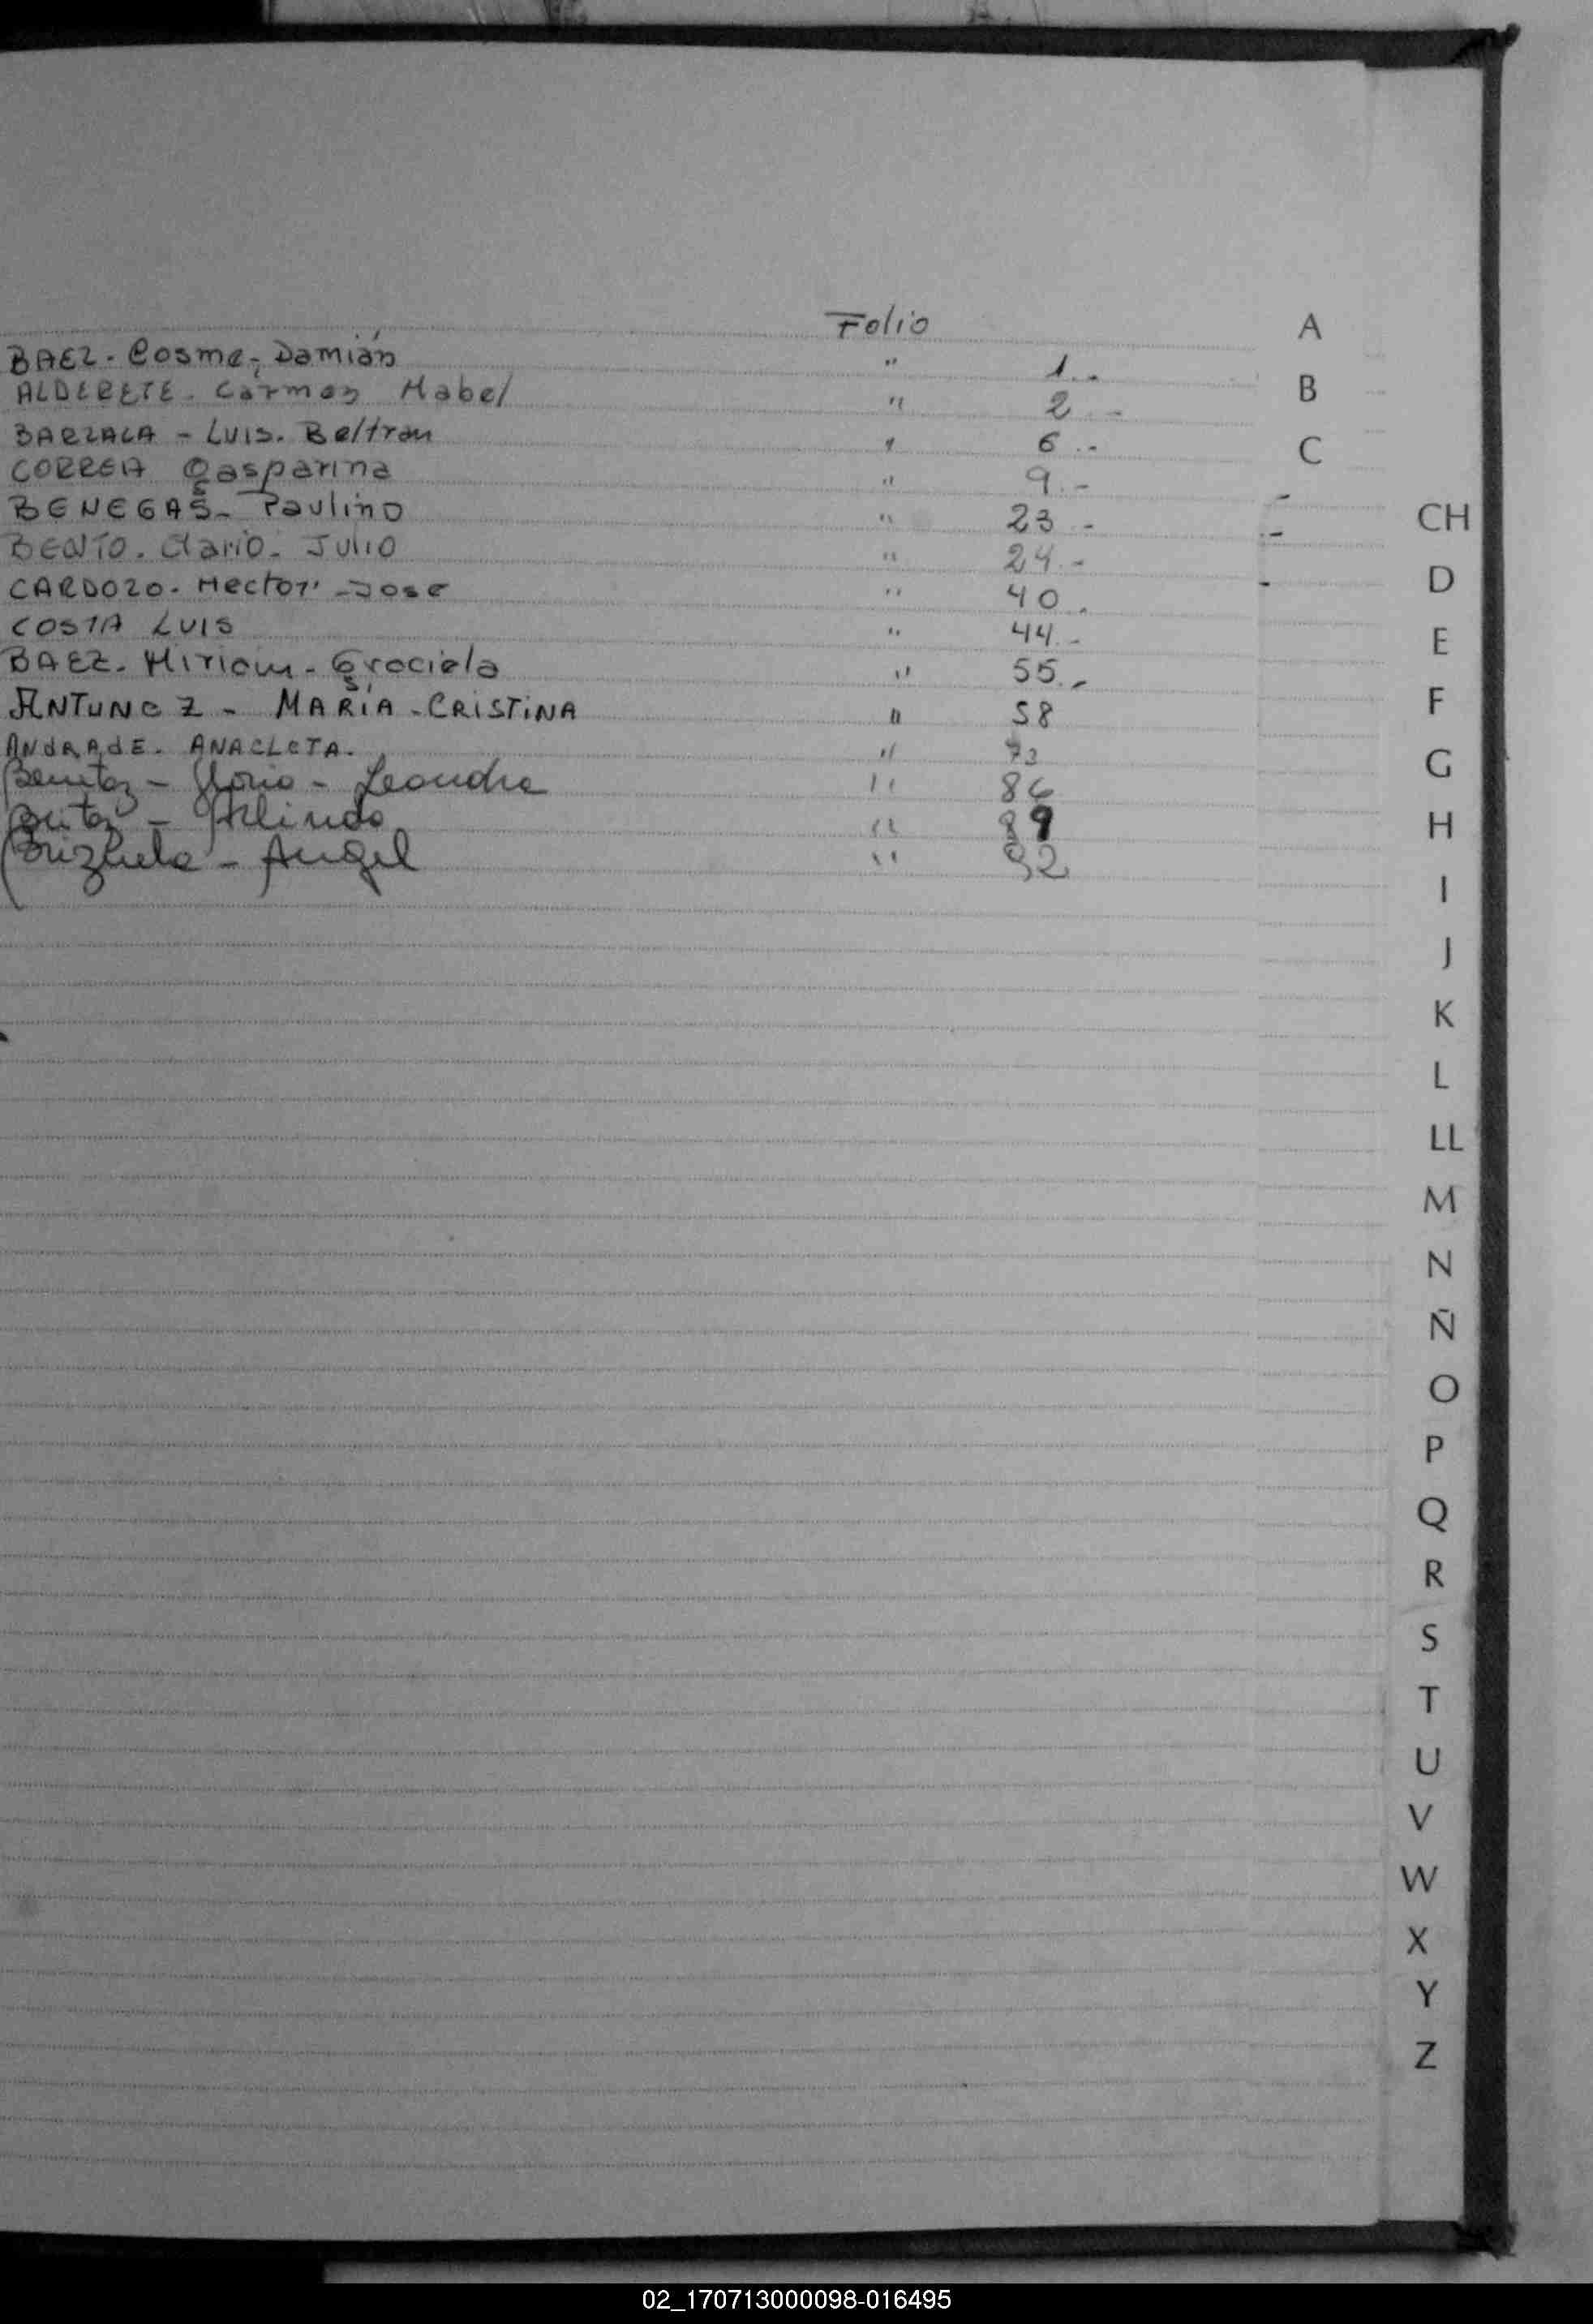 Folio
BAEZ. Cosme, Damián " 1.-
ALDERETE. Carmen Mabel " 2 -
BARZALA - LUIS. Beltran " 6.-
CORREA Gasparina " 9.-
BENEGAS - Paulino " 23.-
BENTO. Clario. Julio " 24.-
CARDOZO. Hector. Jose " 40.
COSTA LUIS " 44.-
BAEZ. Miriam - Graciela " 55.-
ANTUNEZ - MARÍA - CRISTINA " 58
ANdRAdE. ANACLETA. " 73
Benitez - - Leandra " 86
- Arlindo " 89
Brizuela - Angel " 92
A
B
C
CH
D
E
F
G
H
I
J
K
L
LL
M
N
Ñ
O
P
Q
R
S
T
U
V
W
X
Y
Z
02_170713000098-016495